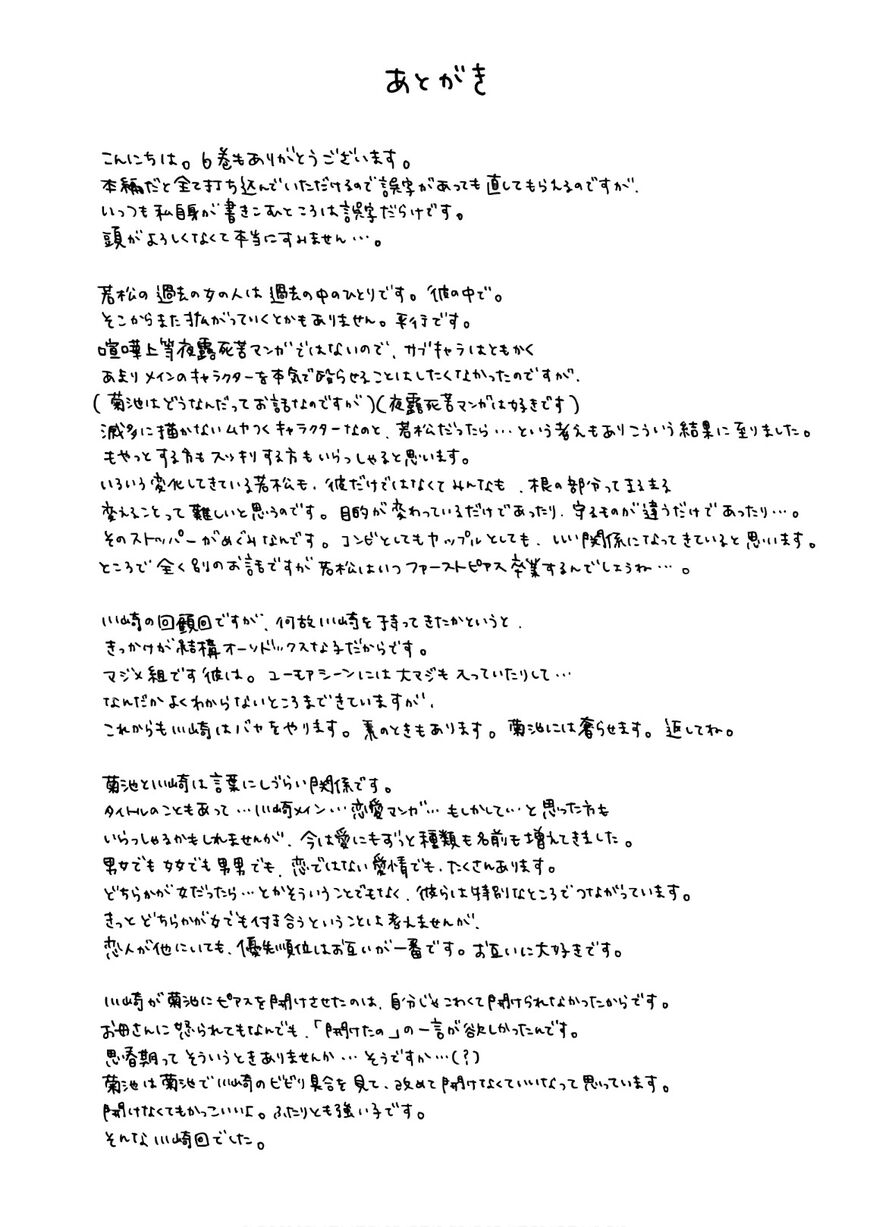 あとがき
こんにちは。6巻もありがとうございます。
本編だと全て打ち込んでいただけるので誤字があっても直してもらえるのですが、
いっつも私自身が書きこむところは誤字だらけです。
頭がよろしくなくて本当にすみません…。
若松の過去の女の人は過去の中のひとりです。彼の中で。
そこからまた拡がっていくとかもありません。平行です。
喧嘩上等夜露死苦マンガではないので、サブキャラはともかく
あまりメインのキャラクターを本気で殴らせることはしたくなかったのですが、
(菊池はどうなんだってお話なのですが)(夜露死苦マンガは好きです)
滅多に描かないムカつくキャラクターなのと、若松だったら…という考えもありこういう結果に至りました。
もやっとする方もスッキリする方もいらっしゃると思います。
いろいろ変化してきている若松も、彼だけではなくてみんなも、根の部分ってまるまる
変えることって難しいと思うのです。目的が変わっているだけであったり、守るものが違うだけであったり…。
そのストッパーがめぐみなんです。コンビとしてもカップルとしても、いい関係になってきていると思います。
ところで全く別のお話ですが若松はいつファーストピアス卒業するんでしょうね…。
川崎の回顧回ですが、何故川崎を持ってきたかというと、
きっかけが結構オーソドックスな子だからです。
マジメ組です彼は。ユーモアシーンには大マジも入っていたりして…
なんだかよくわからないところまできていますが、
これからも川崎はバカをやります。素のときもあります。菊池には奢らせます。返してね。
菊池と川崎は言葉にしづらい関係です。
タイトルのこともあって…川崎メイン…恋愛マンガ…もしかして…と思った方も
いらっしゃるかもしれませんが、今は愛にもずっと種類も名前も増えてきました。
男女でも女女でも男男でも、恋ではない愛情でも、たくさんあります。
どちらかが女だったら…とかそういうことでもなく、彼らは特別なところでつながっています。
きっとどちらかが女でも付き合うということは考えませんが、
恋人が他にいても、優先順位はお互いが一番です。お互いに大好きです。
川崎が菊池にピアスを開けさせたのは、自分じゃこわくて開けられなかったからです。
お母さんに怒られてもなんでも、「開けたの」の一言が欲しかったんです。
思春期ってそういうときありませんか…そうですか…(?)
菊池は菊池で川崎のビビリ具合を見て、改めて開けなくていいなって思っています。
開けなくてもかっこいいよ。ふたりとも強い子です。
そんな川崎回でした。